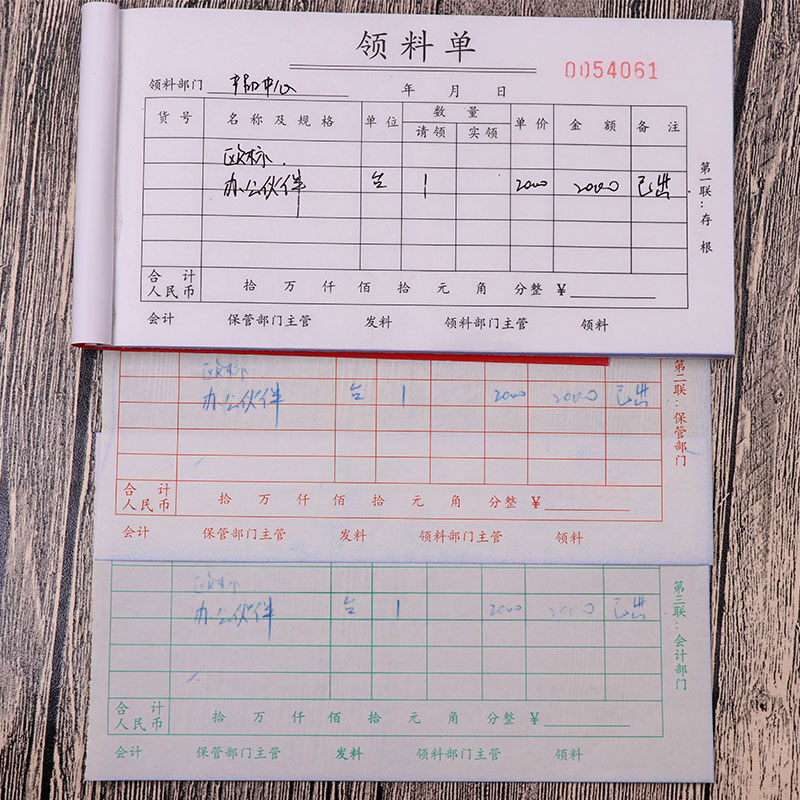 领料单
0054061
领料部门 中心 年 月 日
货号 名称及规格 单位 数量 单价 金额 备注
请领 实领
欧标
办公伙伴 台 1 2000 2000 已出
第一联:存根
合计人民币 拾 万 仟 佰 拾 元 角 分整 ¥
会计 保管部门主管 发料 领料部门主管 领料
欧标
办公伙伴 台 1 2000 2000 已出
第二联:保管部门
合计人民币 拾 万 仟 佰 拾 元 角 分整 ¥
会计 保管部门主管 发料 领料部门主管 领料
欧标
办公伙伴 台 1 2000 2000 已出
第三联:会计部门
合计人民币 拾 万 仟 佰 拾 元 角 分整 ¥
会计 保管部门主管 发料 领料部门主管 领料